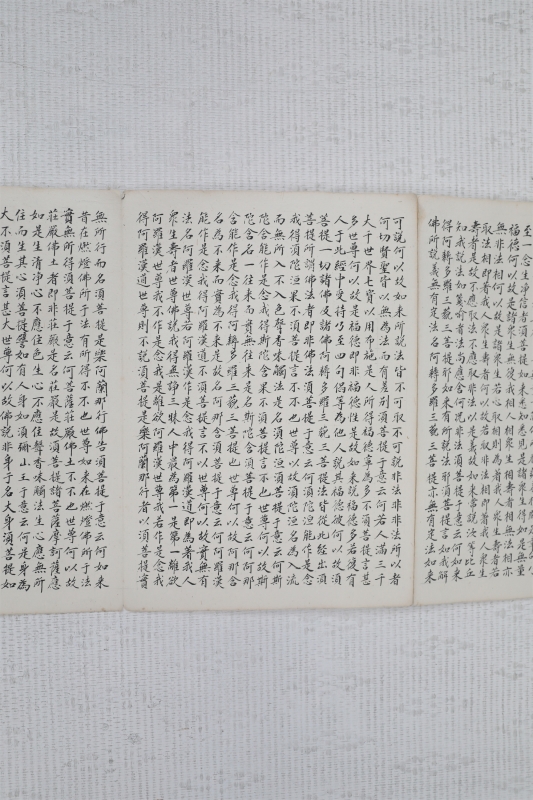 至一念生淨信者須菩提如來悉知悉見是諸眾生得如是無量
福德何以故是諸眾生無復我相人相眾生相壽者相無法相亦
無非法相何以故是諸眾生若心取相則為著我人眾生壽者若
取法相即著我人眾生壽者何以故若取非法相即著我人眾生
壽者是故不應取法不應取非法以是義故如來常說汝等比丘
知我說法如筏喻者法尚應捨何況非法須菩提于意云何如來
得阿耨多羅三藐三菩提耶如來有所說法耶須菩提言如我解
佛所說義無有定法名阿耨多羅三藐三菩提亦無有定法如來
可說何以故如來所說法皆不可取不可說非法非非法所以者
何切賢聖皆以無為法而有差別須菩提于意云何若人滿三千
大千世界七寶以用布施是人所得福德寧為多不須菩提言甚
多世尊何以故是福德即非福德性是故如來說福德多若復有
人于此經中受持乃至四句偈等為他人說其福德彼何以故須
菩提一切諸佛及諸佛阿耨多羅三藐三菩提法皆從此經出須
菩提所謂佛法者即非佛法須菩提于意云何須陀洹能作是念
我得須陀洹果不須菩提言不也世尊何以故須陀洹名為入流
而無所入不入色聲香味觸法是名須陀洹須菩提于意云何斯
陀含能作是念我得斯陀含果不須菩提言不也世尊何以故斯
陀含名一往來而實無往來是名斯陀含須菩提于意云何阿那
含能作是念我得阿耨多羅三藐三菩提也世尊何以故阿那含
名為不來而實為不來是故名阿那含須菩提于意云何阿羅漢
能作是念我得阿羅漢道不須菩提言不以世尊何以故實無有
法名阿羅漢世尊若阿羅漢作是念我得阿羅漢道即為著我人
眾生壽者世尊佛說我得無諍三昧人中最為第一是第一離欲
阿羅漢世尊我不作是念我是離欲阿羅漢世尊我若作是念我
得阿羅漢道世尊則不說須菩提是樂阿蘭那行者以須菩提實
無所行而名須菩提是樂阿蘭那行佛告須菩提于意云何如來
昔在燃燈佛所于法有所得不不也世尊如來在燃燈佛所于法
實無所得須菩提于意云何菩薩莊嚴佛土不不也世尊何以故
莊嚴佛土者即非莊嚴是名莊嚴是故須菩提諸菩薩摩訶薩應
如是生清淨心不應住色生心不應住聲香味觸法生心應無所
住而生其心須菩提譬如有人身如須彌山王于意云何是身為
大不須菩提言甚大世尊何以故佛說非身于名大身須菩提如